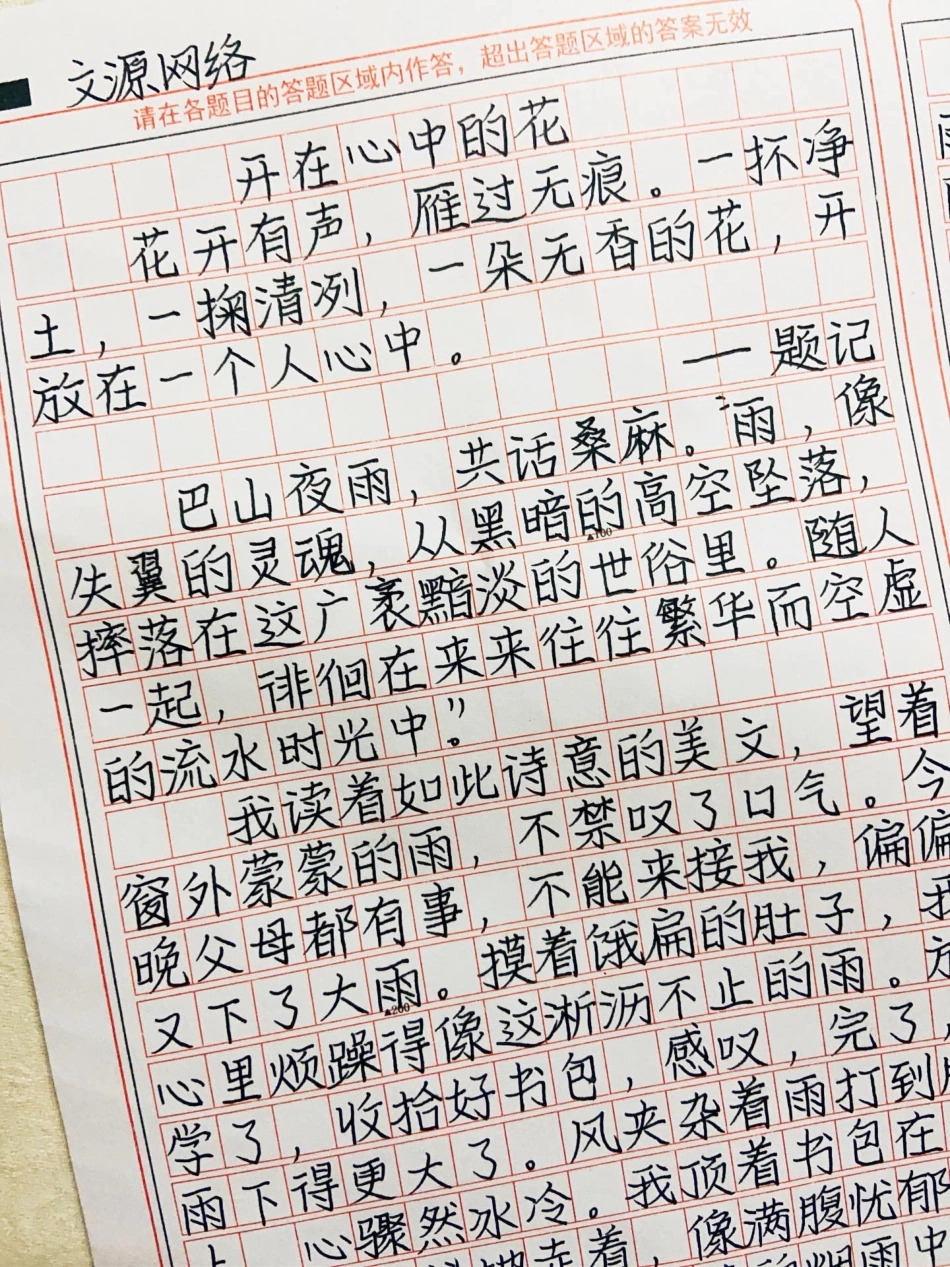 文源网络
请在各题目的答题区域内作答，超出答题区域的答案无效
开在心中的花
花开有声，雁过无痕。一抔净
土，一掬清冽，一朵无香的花，开
放在一个人心中。 ——题记
巴山夜雨，共话桑麻。"雨，像
失翼的灵魂，从黑暗的高空坠落，
摔落在这广袤黯淡的世俗里。随人
一起，徘徊在来来往往繁华而空虚
的流水时光中。"
▲100
我读着如此诗意的美文，望着
窗外蒙蒙的雨，不禁叹了口气。今
晚父母都有事，不能来接我，偏偏
又下了大雨。摸着饿扁的肚子，我
▲200
心里烦躁得像这淅沥不止的雨。放
学了，收拾好书包，感叹，完了，
雨下得更大了。风夹杂着雨打到
心骤然冰冷。我顶着书包在
走着，像满腹忧郁
烟雨中